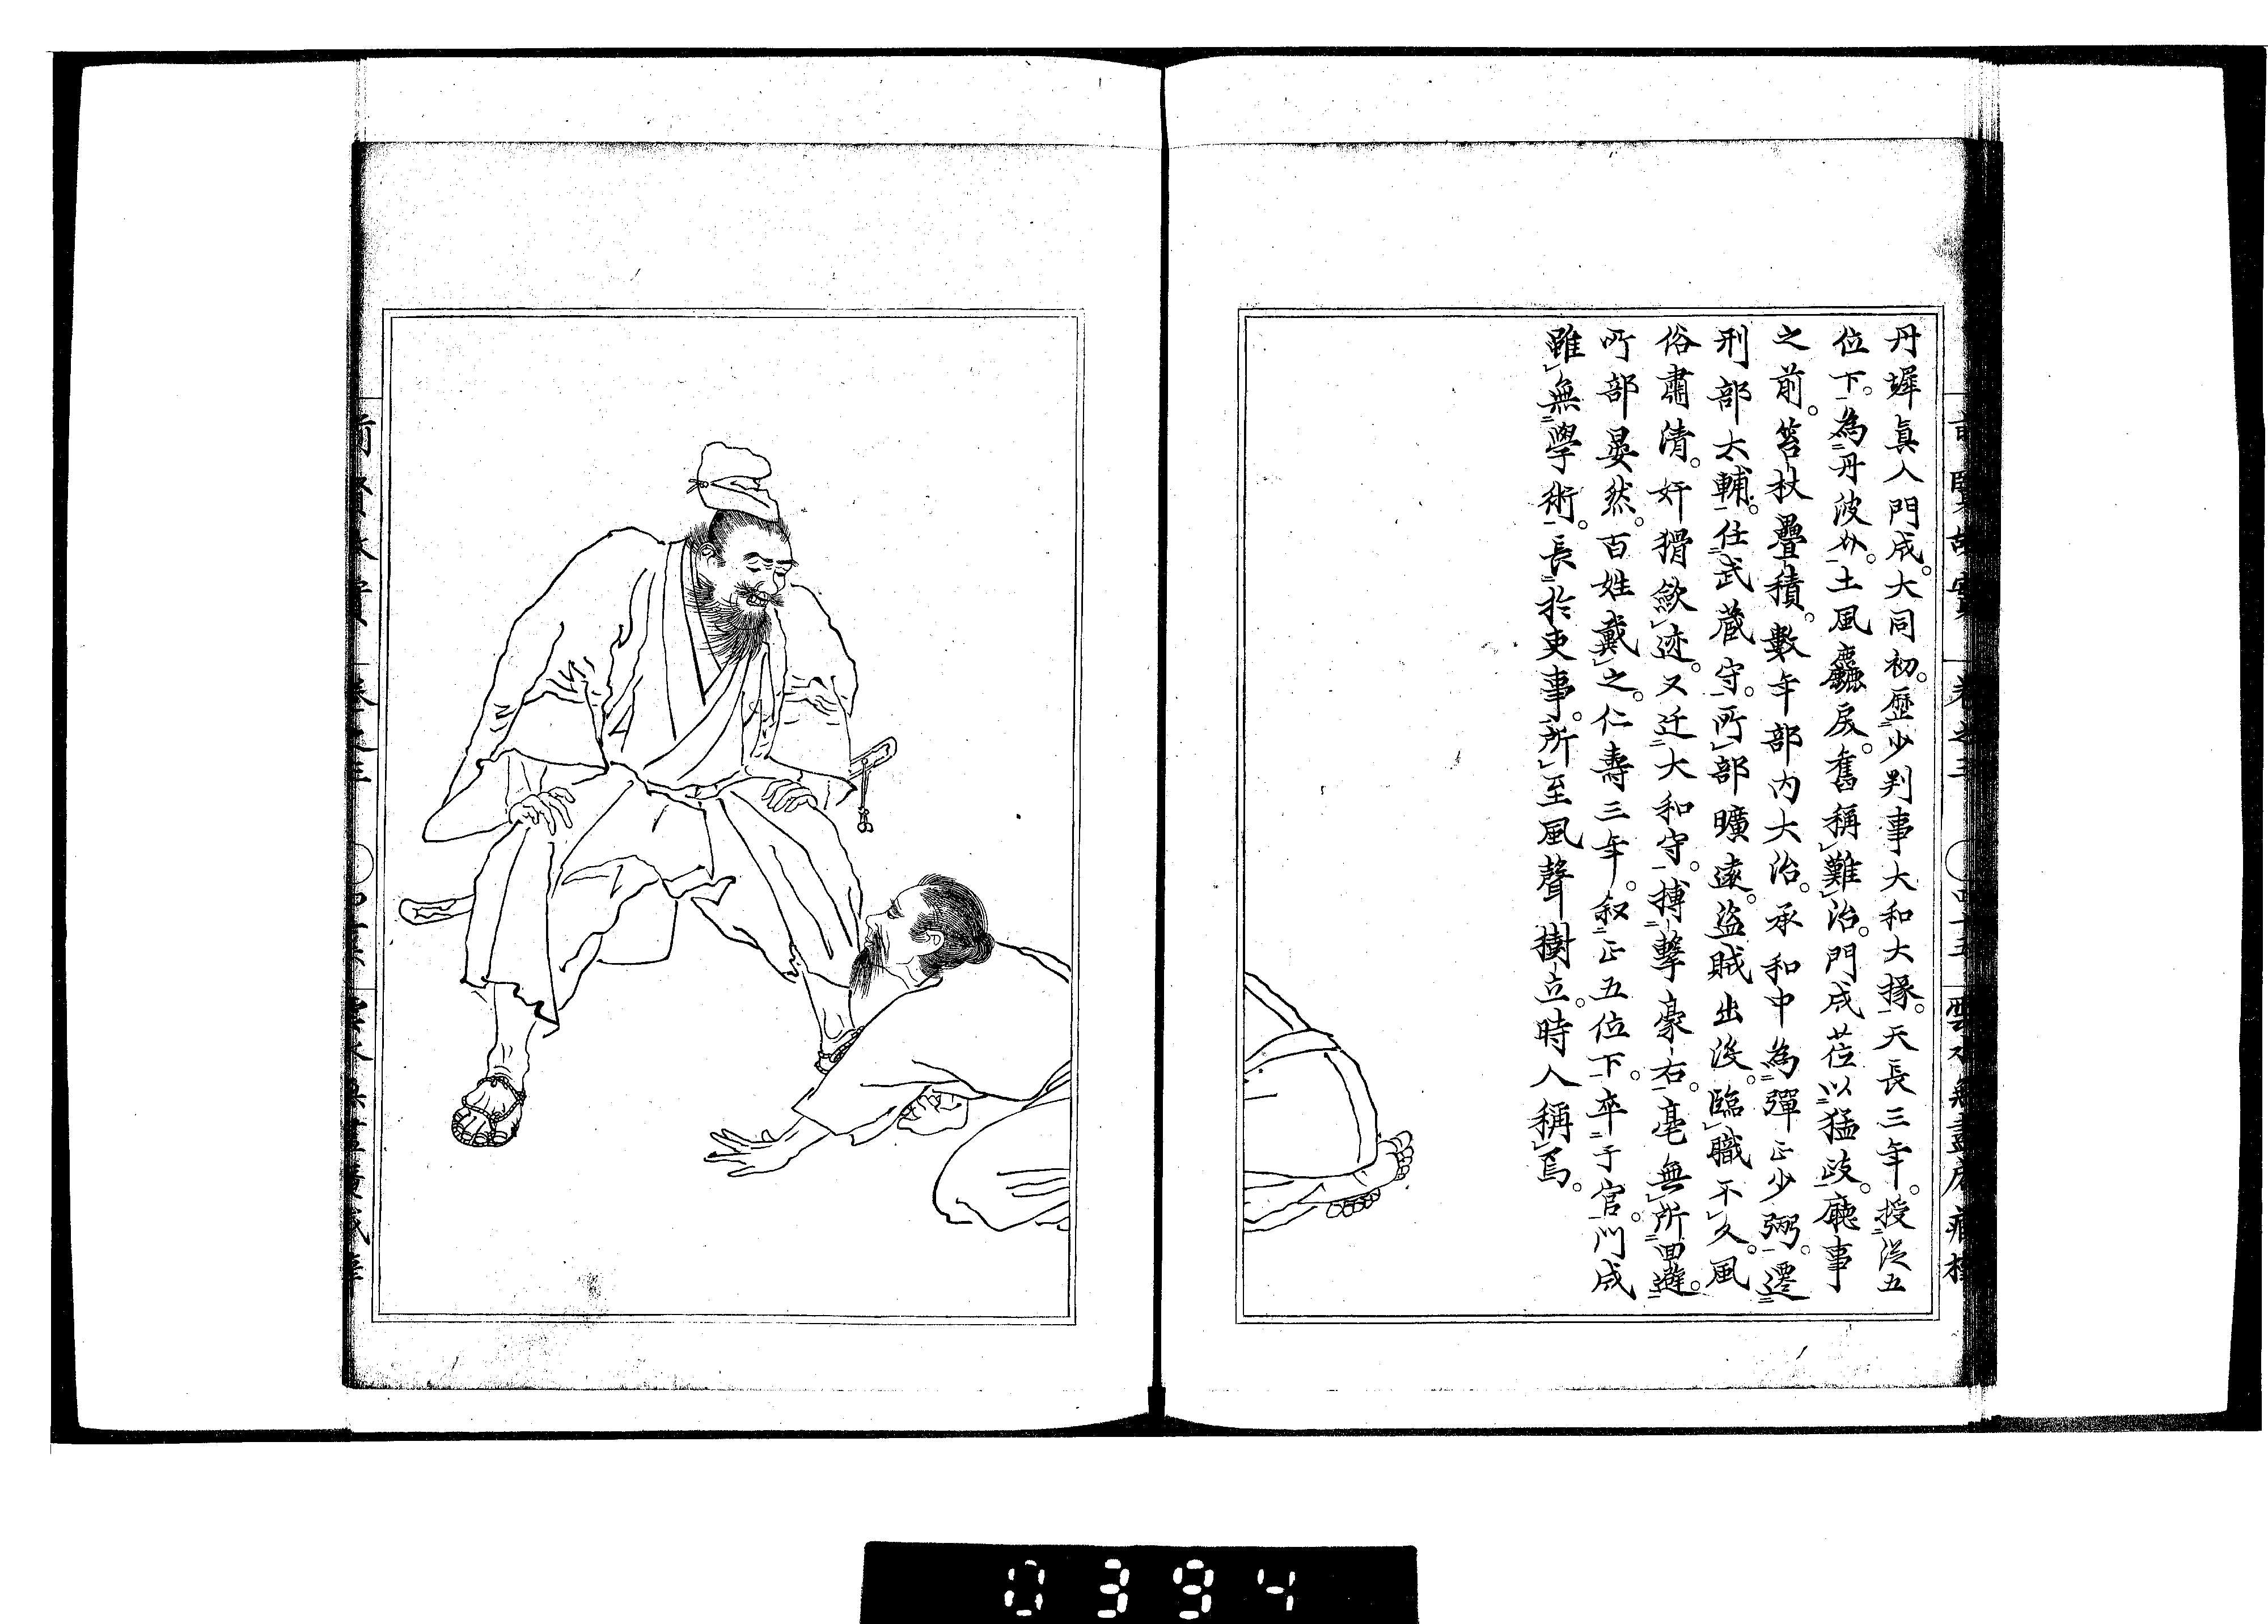 丹墀眞人門成。大同初。歷少判事大和大掾。天長三年。授從五
位下。為丹波介。土風麤戾。舊稱難治。門成莅以猛政。廳事
之前。笞杖疊積。數年部內大治。承和中為彈正少弼。遷
刑部太輔。仕武藏守。所部曠遠。盜賊出沒。臨職不久。風
俗肅清。奸猾斂迹。又迁大和守。搏擊豪右。毫無所回避。
所部晏然。百姓戴之。仁壽三年。叙正五位下。卒于官。門成
雖無學術。長於吏事。所至風聲樹立。時人稱焉。
0394